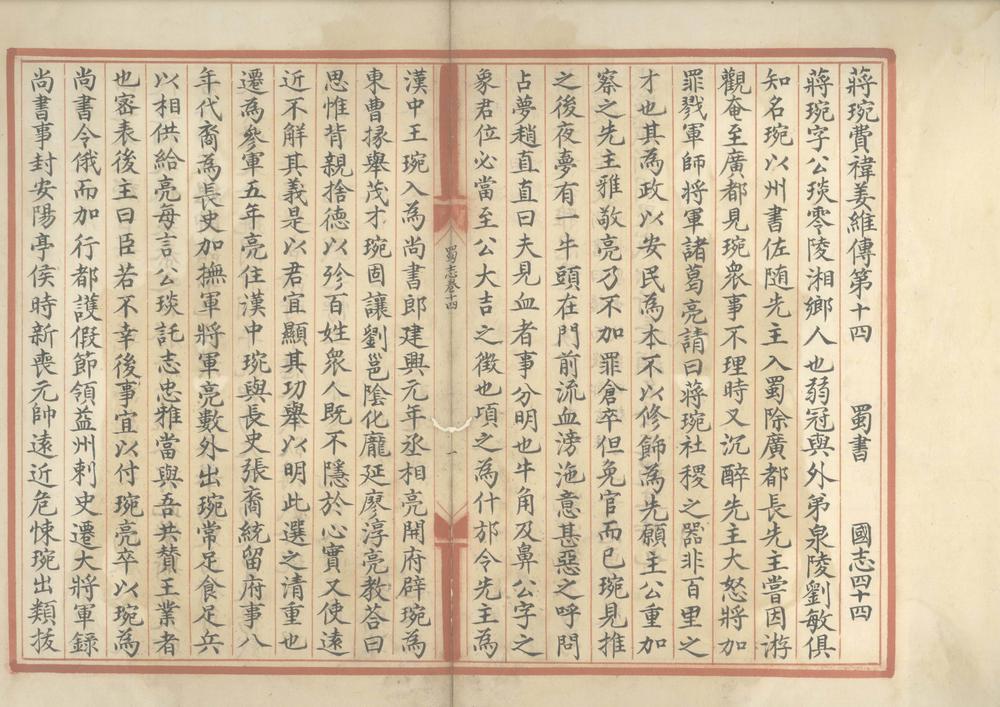 蔣琬費禕姜維傳第十四　蜀書　國志四十四
蔣琬字公琰零陵湘鄉人也弱冠與外弟泉陵劉敏俱
知名琬以州書佐随先主入蜀除廣都長先主嘗因游
觀奄至廣都見琬衆事不理時又沉醉先主大怒將加
罪戮軍師将軍諸葛亮請曰蔣琬社稷之器非百里之
才也其為政以安民為本不以修飾為先願主公重加
察之先主雅敬亮乃不加罪倉卒但免官而已琬見推
之後夜夢有一牛頭在門前流血滂沲意甚惡之呼問
占夢趙直直曰夫見血者事分明也牛角及鼻公字之
象君位必當至公大吉之徴也頃之為什邡令先主為
蜀志卷十四
一
漢中王琬入為尚書郎建興元年丞相亮開府辟琬為
東曹掾舉茂才琬固讓劉邕陰化龐延廖淳亮教荅曰
思惟背親捨德以殄百姓衆人既不隱於心實又使遠
近不解其義是以君宜顯其功舉以明此選之清重也
遷為參軍五年亮住漢中琬與長史張裔統留府事八
年代裔為長史加撫軍將軍亮數外出琬常足食足兵
以相供給亮每言公琰託志忠雅當與吾共賛王業者
也密表後主曰臣若不幸後事宜以付琬亮卒以琬為
尚書令俄而加行都護假節領益州刺史遷大將軍録
尚書事封安陽亭侯時新喪元帥遠近危悚琬出類拔